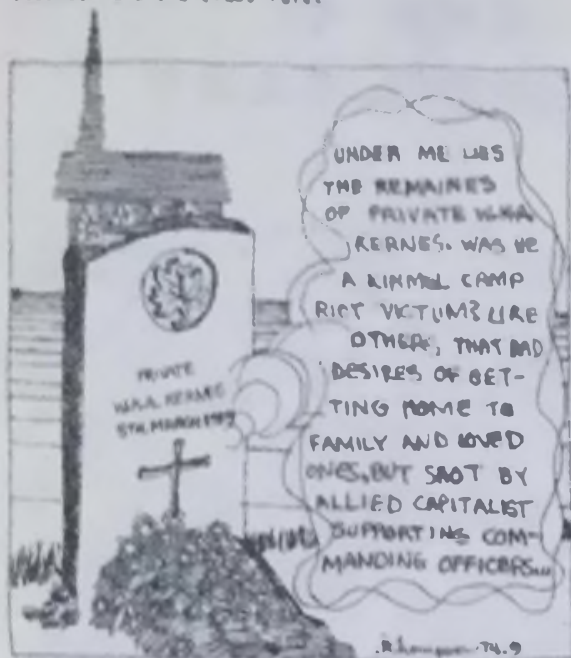 PRIVATE
5TH MARCH
UNDER ME LIES
THE REMAINES
OF PRIVATE W.H.A.
KERNES. WAS HE
A KINMEL CAMP
RIOT VICTUM? LIKE
OTHERS, THAT HAD
DESIRES OF GET-
TING HOME TO
FAMILY AND LOVED
ONES, BUT SHOT BY
ALLIED CAPITALIST
SUPPORTING COM-
MANDING OFFICERS...